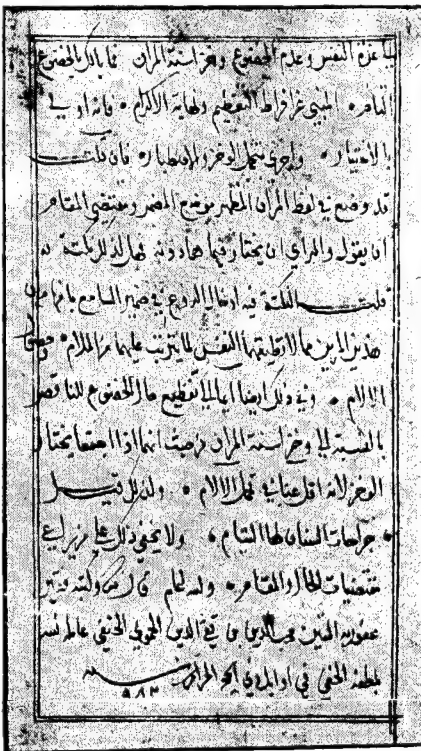 عزة النفس وعدم الخضوع وخز اسنة المران فما بالك بالخضوع
المبني عن افراط التعظيم ونهاية الاكرام فانه اولى
بالاختيار واحرى بتحمل الوخز والاصطبار فان قلت
قد وضع في لفظ المران المظهر موضع المضمر ومقتضى المقام
ان يقول والمراي ان يختار فيها دونه فهل لذلك نكتة
قلت النكتة فيه ادخال الروع في ضمير السامع
هذين المرين مما لا تطيقها النفس لما يترتب عليهما من الملام
الالام وفي ذلك ايضا ايما الى تفظيع حال الخضوع للناقص
بالنسبة الى وخز اسنة المران من حيث انهما اذا اجتمعا يختار
الوخز لانه اقل عناء في تحمل الالام ولذلك قيل
جراحات السنان لها التيام ولا يخفى ذلك على من يراعي
مقتضيات الحال والمقام والله اعلم قال وكتبه فقير
عفو ربه محب الدين بن تقي الدين الحموي الحنفي عامله الله
بلطفه الخفي في اوايل ذي الحرام
٩٨٣